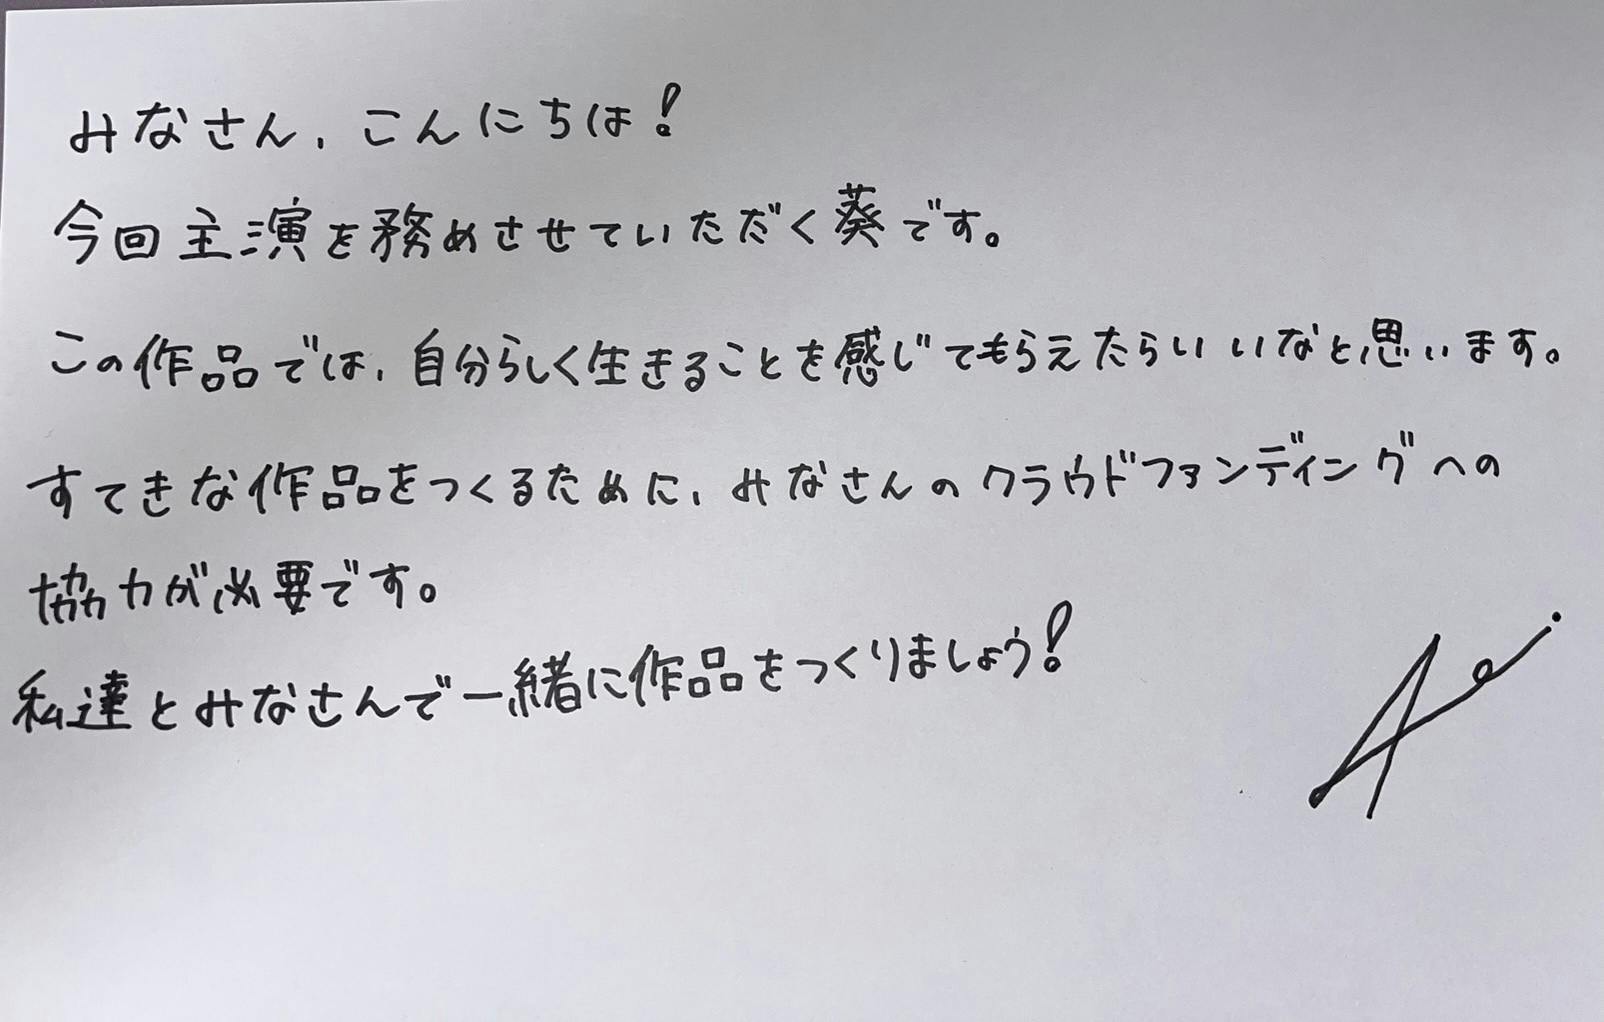 みなさん、こんにちは!
今回主演を務めさせていただく葵です。
この作品では、自分らしく生きることを感じてもらえたらいいなと思います。
すてきな作品をつくるために、みなさんのクラウドファンディングへの
協力が必要です。
私達とみなさんで一緒に作品をつくりましょう!
Aoi